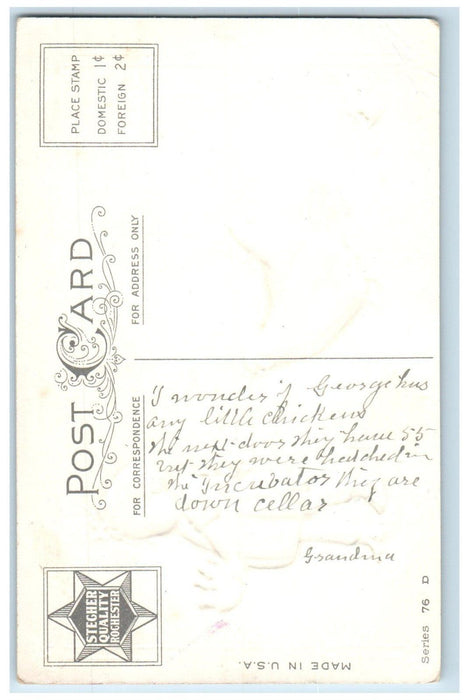 POST CARD
PLACE STAMP
DOMESTIC 1¢
FOREIGN 2¢
FOR CORRESPONDENCE
FOR ADDRESS ONLY
I wonder if George has
any little chickens
the next door they have 55
but they were hatched in
the Incubator they are
down cellar
Grandma
STECHER
QUALITY
ROCHESTER
MADE IN U.S.A.
Series 76 D